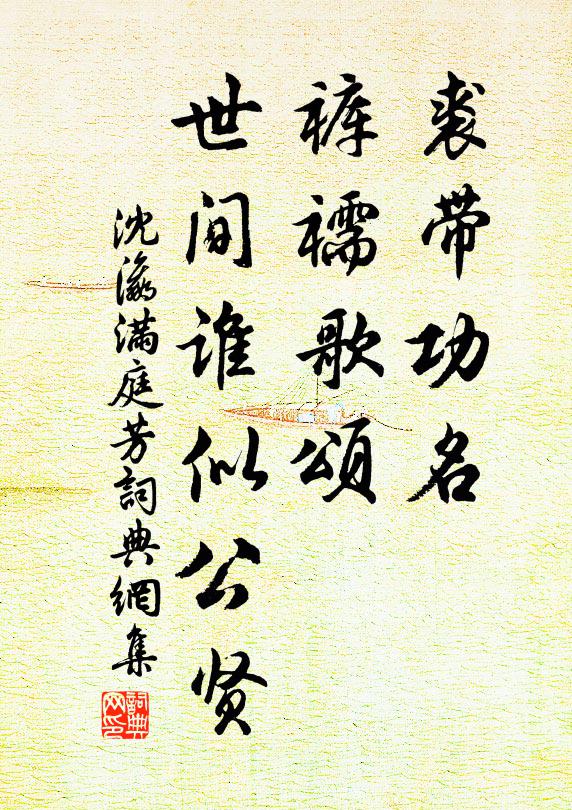 裘带功名
裤襦歌頌
世间谁似公贤
沈瀛满庭芳詞典網集
詞典网印